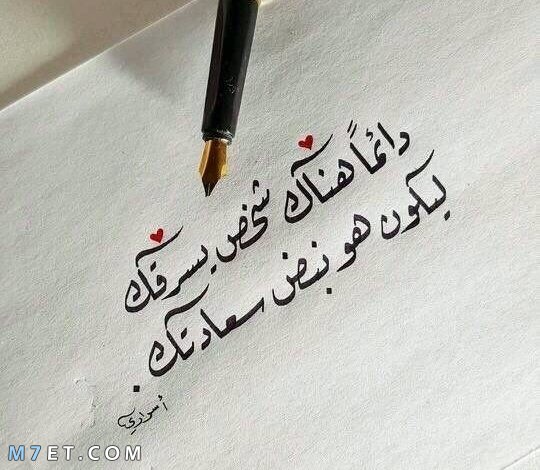 دائماً هناك شخص يسرقك
ليكون هو نبض سعادتك .
أسواري
M7ET.COM